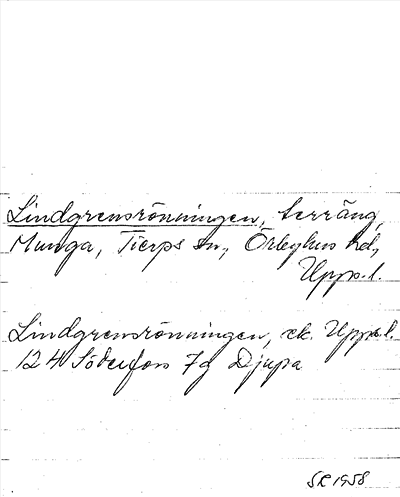 Lindgrensrönningen, terräng,
Munga, Tierps sn, Örbyhus hd,
Uppl.
Lindgrensrönningen, ek. Uppl.
12 H Söderfors 7g Djupa
SR 1958